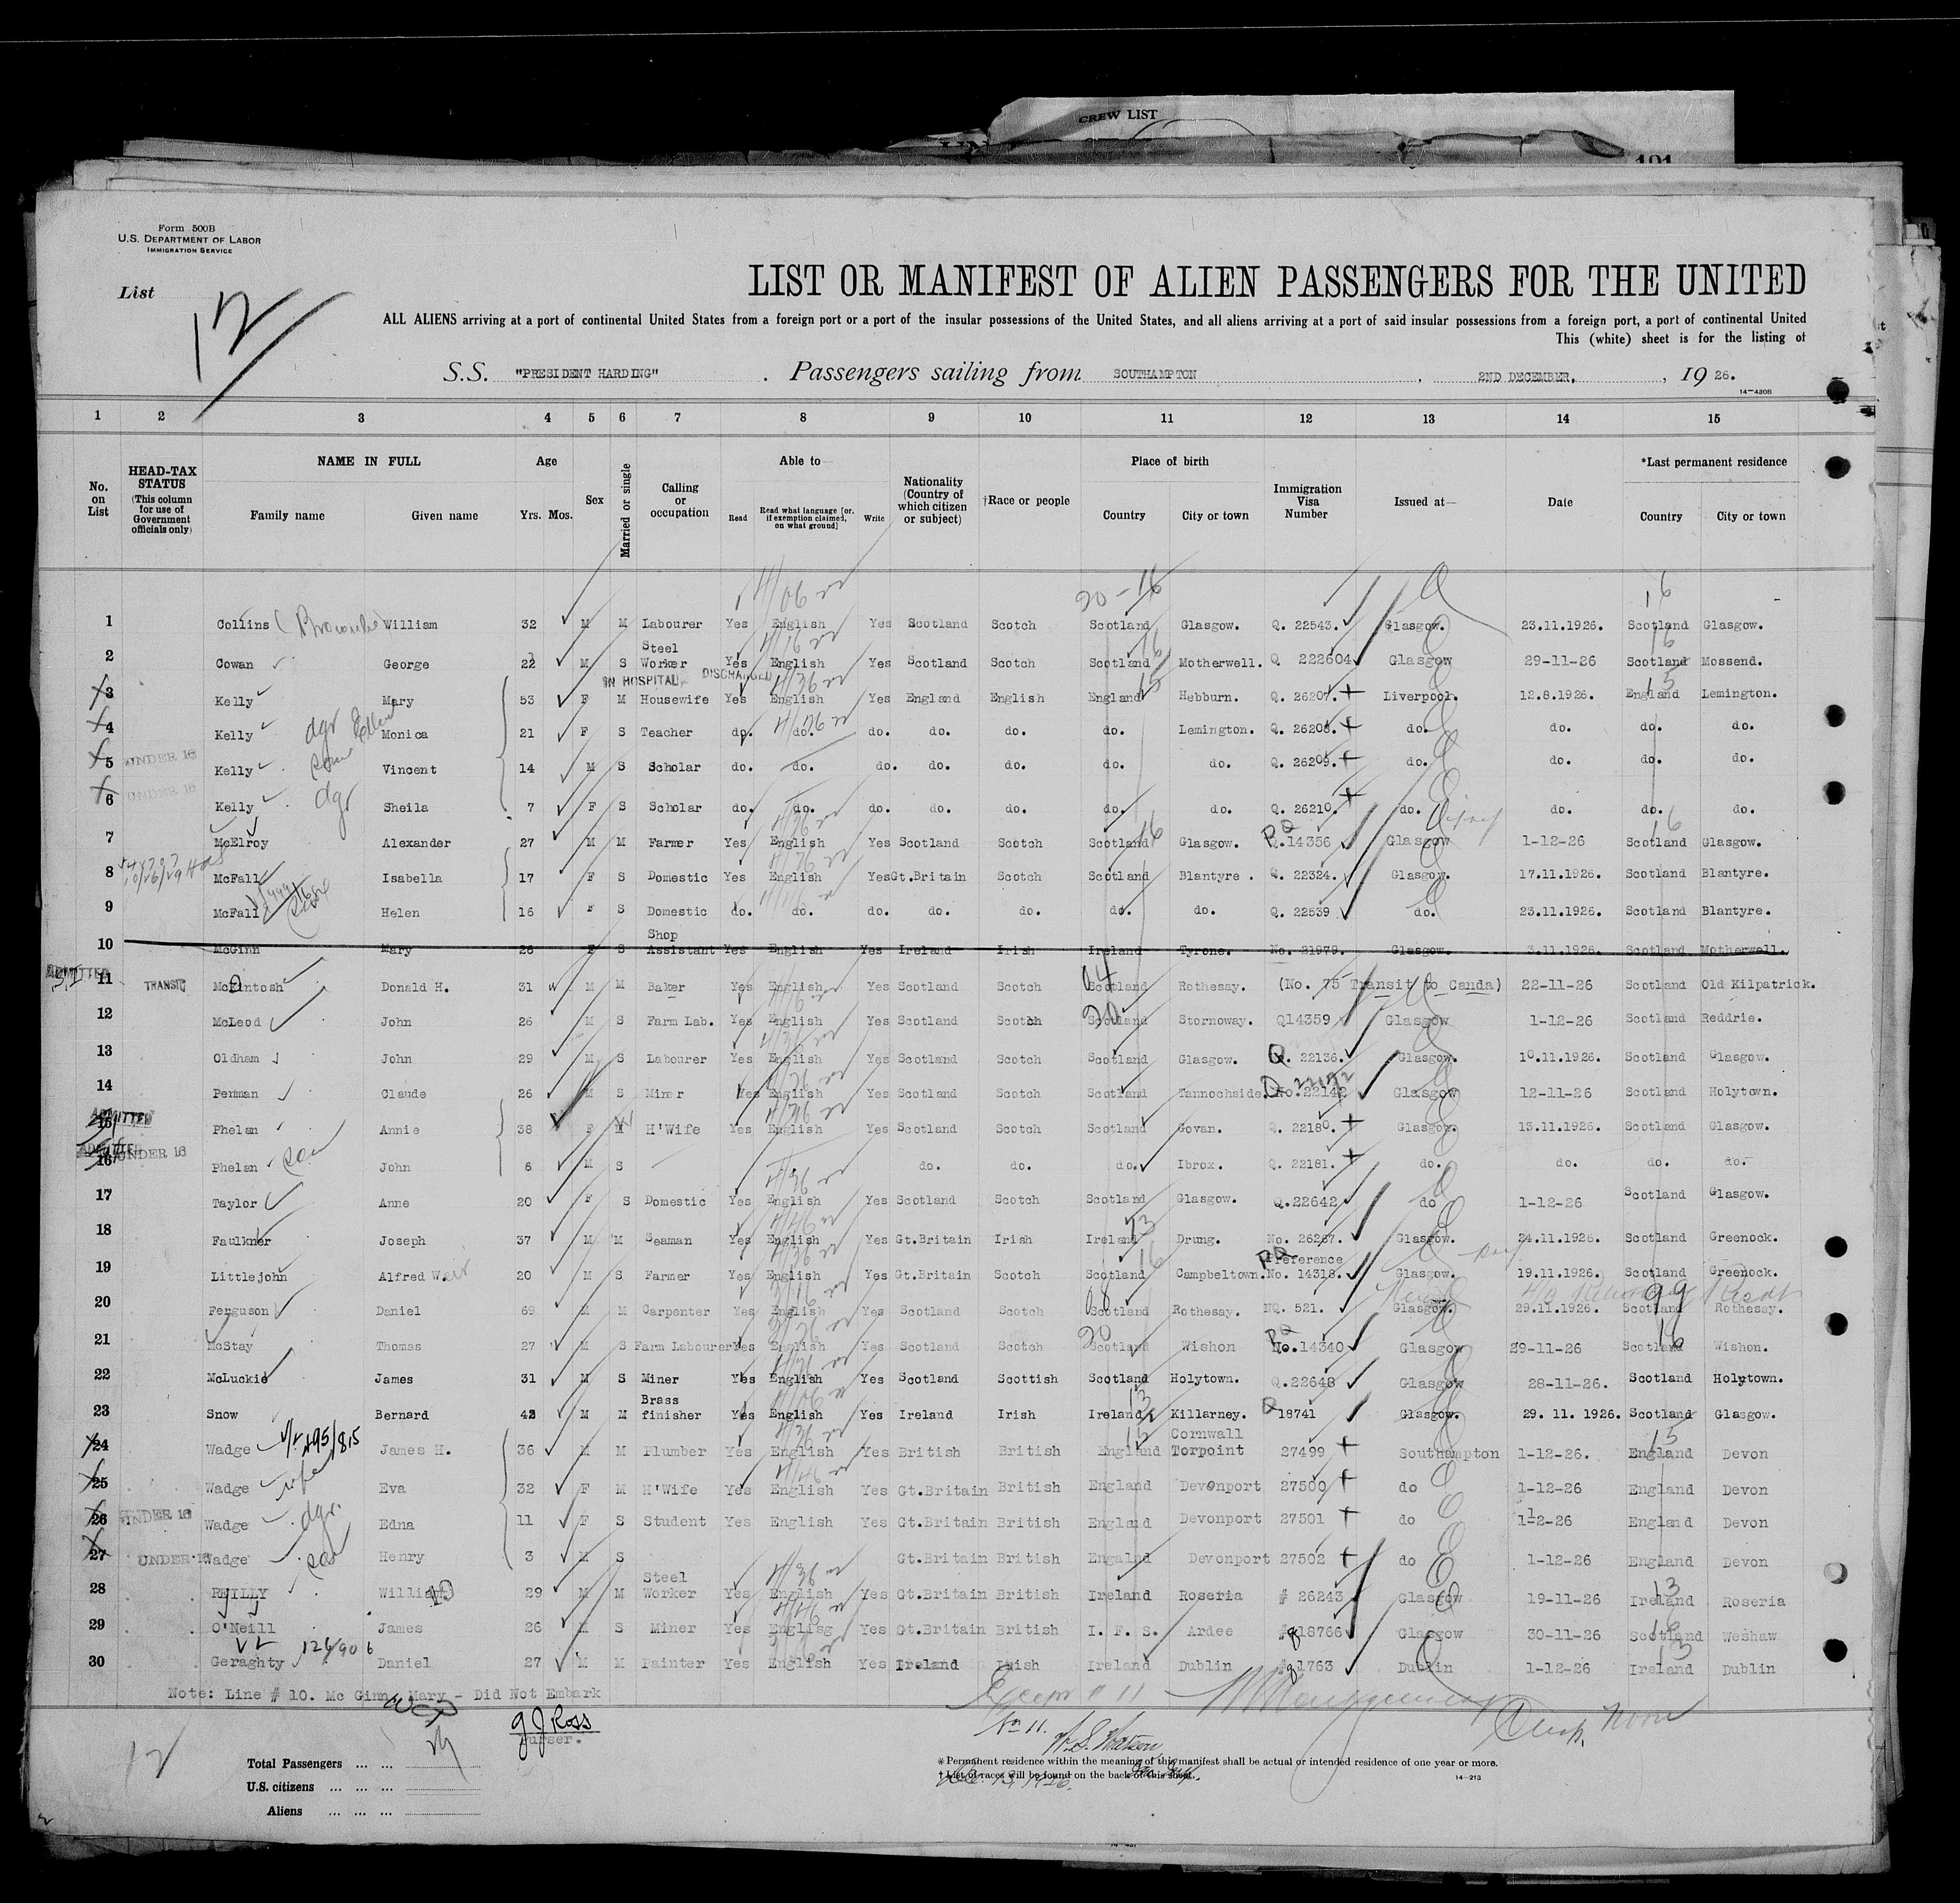 CREW LIST
101
Form 500B
U.S. DEPARTMENT OF LABOR
IMMIGRATION SERVICE
List 12
LIST OR MANIFEST OF ALIEN PASSENGERS FOR THE UNITED
ALL ALIENS arriving at a port of continental United States from a foreign port or a port of the insular possessions of the United States, and all aliens arriving at a port of said insular possessions from a foreign port, a port of continental United
This (white) sheet is for the listing of
S.S. "PRESIDENT HARDING" . Passengers sailing from SOUTHAMPTON , 2ND DECEMBER, , 19 26.
14—430B
1 2 3 4 5 6 7 8 9 10 11 12 13 14 15
No. on List HEAD-TAX STATUS (This column for use of Government officials only) NAME IN FULL Family name Given name Age Yrs. Mos. Sex Married or single Calling or occupation Able to— Read Read what language [or, if exemption claimed, on what ground] Write Nationality (Country of which citizen or subject) †Race or people Place of birth Country City or town Immigration Visa Number Issued at— Date *Last permanent residence Country City or town
1 Collins William 32 M M Labourer Yes English Yes Scotland Scotch Scotland Glasgow. Q. 22543. Glasgow. 23.11.1926. Scotland Glasgow.
2 Cowan George 22 M S Steel Worker Yes English Yes Scotland Scotch Scotland Motherwell. Q 222604 Glasgow 29-11-26 Scotland Mossend.
IN HOSPITAL DISCHARGED
3 Kelly Mary 53 F M Housewife Yes English Yes England English England Hebburn. Q. 26207. Liverpool. 12.8.1926. England Lemington.
4 Kelly dgr Ellen Monica 21 F S Teacher do. do. do. do. do. do. Lemington. Q. 26208. do. do. do. do.
5 UNDER 16 Kelly son Vincent 14 M S Scholar do. do. do. do. do. do. do. Q. 26209. do. do. do. do.
6 UNDER 16 Kelly dgr Sheila 7 F S Scholar do. do. do. do. do. do. do. Q. 26210. do. do. do. do.
7 McElroy Alexander 27 M M Farmer Yes English Yes Scotland Scotch Scotland Glasgow. Q.14356 Glasgow 1-12-26 Scotland Glasgow.
8 McFall Isabella 17 F S Domestic Yes English Yes Gt.Britain Scotch Scotland Blantyre . Q. 22324. Glasgow. 17.11.1926. Scotland Blantyre.
9 McFall Helen 16 F S Domestic do. do. do. do. do. do. do. Q. 22539 do. 23.11.1926. Scotland Blantyre.
10 McGinn Mary 26 F S Shop Assistant Yes English Yes Ireland Irish Ireland Tyrone. No. 21979. Glasgow. 3.11.1926. Scotland Motherwell.
ADMITTED
11 TRANSIT McIntosh Donald H. 31 M M Baker Yes English Yes Scotland Scotch Scotland Rothesay. (No. 75 Transit to Canda) 22-11-26 Scotland Old Kilpatrick.
12 McLeod John 26 M S Farm Lab. Yes English Yes Scotland Scotch Scotland Stornoway. Q14359 Glasgow 1-12-26 Scotland Reddrie.
13 Oldham John 29 M S Labourer Yes English Yes Scotland Scotch Scotland Glasgow. Q. 22136. Glasgow. 10.11.1926. Scotland Glasgow.
14 Penman Claude 26 M S Miner Yes English Yes Scotland Scotch Scotland Tannochside. No.22142 Glasgow 12-11-26 Scotland Holytown.
ADMITTED
15 Phelan Annie 38 F M H'Wife Yes English Yes Scotland Scotch Scotland Govan. Q. 22180. Glasgow. 13.11.1926. Scotland Glasgow.
ADMITTED
16 UNDER 16 Phelan son John 6 M S do. do. do. Ibrox. Q. 22181. do. do. do. do.
17 Taylor Anne 20 F S Domestic Yes English Yes Scotland Scotch Scotland Glasgow. Q.22642 do 1-12-26 Scotland Glasgow.
18 Faulkner Joseph 37 M M Seaman Yes English Yes Gt.Britain Irish Ireland Drung. No. 26267. Glasgow. 24.11.1926. Scotland Greenock.
19 Littlejohn Alfred Weir 20 M S Farmer Yes English Yes Gt.Britain Scotch Scotland Campbeltown. Preference No. 14318. Glasgow. 19.11.1926. Scotland Greenock.
20 Ferguson Daniel 69 M M Carpenter Yes English Yes Scotland Scotch Scotland Rothesay. NQ. 521. Glasgow. 29.11.1926. Scotland Rothesay.
21 McStay Thomas 27 M S Farm Labourer Yes English Yes Scotland Scotch Scotland Wishon No.14340 Glasgow 29-11-26 Scotland Wishon.
22 McLuckie James 31 M S Miner Yes English Yes Scotland Scottish Scotland Holytown. Q.22648 Glasgow 28-11-26. Scotland Holytown.
23 Snow Bernard 42 M M Brass finisher Yes English Yes Ireland Irish Ireland Killarney. Q 18741 Glasgow. 29. 11. 1926. Scotland Glasgow.
24 Wadge James H. 36 M M Plumber Yes English Yes British British England Cornwall Torpoint 27499 Southampton 1-12-26. England Devon
25 Wadge wife Eva 32 F M H'Wife Yes English Yes Gt.Britain British England Devonport 27500 do 1-12-26 England Devon
26 UNDER 16 Wadge dgr. Edna 11 F S Student Yes English Yes Gt.Britain British England Devonport 27501 do 1-12-26 England Devon
27 UNDER 16 Wadge son Henry 3 M S Gt.Britain British Engalnd Devonport 27502 do 1-12-26 England Devon
28 REILLY William 29 M M Steel Worker Yes English Yes Gt.Britain British Ireland Roseria # 26243 Glasgow 19-11-26 Ireland Roseria
29 O'Neill James 26 M S Miner Yes Englisg Yes Gt.Britain British I. F. S. Ardee # 18766 Glasgow 30-11-26 Scotland Weshaw
30 Geraghty Daniel 27 M M Painter Yes English Yes Ireland Irish Ireland Dublin # 1763 Dublin 1-12-26 Ireland Dublin
Note: Line # 10. Mc Ginn, Mary - Did Not Embark
Except # 11
No 11.
W.S. Watson
G J Ross
Purser.
12
Total Passengers ... ...
U.S. citizens ... ... ...
Aliens ... ... ...
* Permanent residence within the meaning of this manifest shall be actual or intended residence of one year or more.
† List of races will be found on the back of this sheet.
14—213